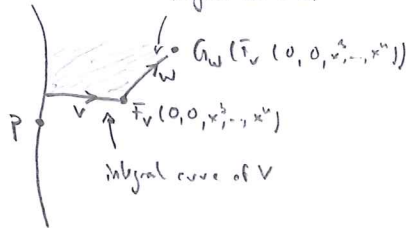 G_w (F_v (0, 0, x³, ..., xⁿ))
w
v
F_v (0, 0, x³, ..., xⁿ)
P
integral curve of V